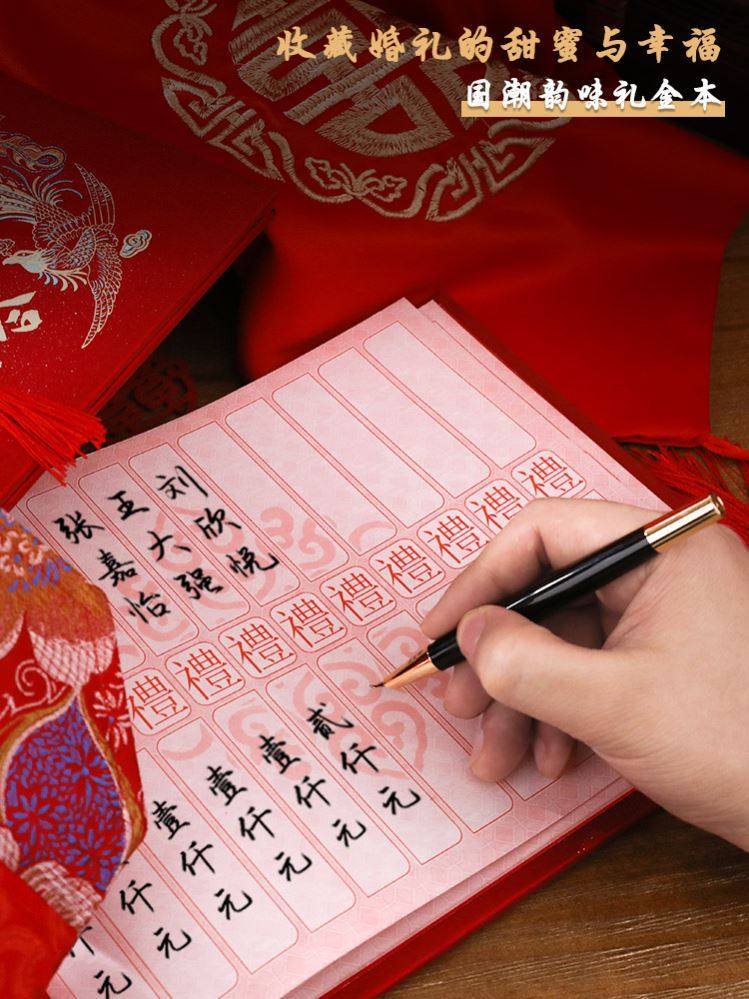 收藏婚礼的甜蜜与幸福
国潮韵味礼金本
刘欣悦
王大强
张嘉怡
禮禮禮禮禮禮禮禮禮
贰仟元
壹仟元
壹仟元
壹仟元
仟元
仟元